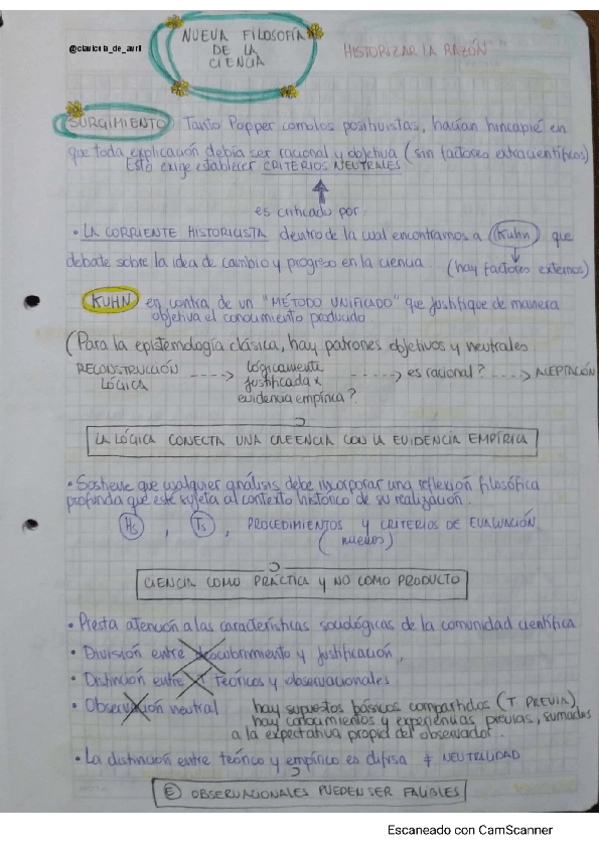 @clavicula_de_avril
NUEVA FILOSOFÍA
DE LA
CIENCIA
"HISTORIZAR LA RAZÓN"
SURGIMIENTO Tanto Popper como los positivistas, hacían hincapié en
que toda explicación debía ser racional y objetiva (sin factores extracientíficos)
Esto exige establecer CRITERIOS NEUTRALES
es criticado por
• LA CORRIENTE HISTORICISTA dentro de la cual encontramos a Kuhn que
debate sobre la idea de cambio y progreso en la ciencia (hay factores externos)
KUHN en contra de un "MÉTODO UNIFICADO" que justifique de manera
objetiva el conocimiento producido
(Para la epistemología clásica, hay patrones objetivos y neutrales
RECONSTRUCCIÓN LÓGICA ----> lógicamente justificada x evidencia empírica? ----> es racional? ----> ACEPTACIÓN
LA LÓGICA CONECTA UNA CREENCIA CON LA EVIDENCIA EMPÍRICA
• Sostiene que cualquier análisis debe incorporar una reflexión filosófica
profunda que esté sujeta al contexto histórico de su realización.
Hs , Ts , PROCEDIMIENTOS y CRITERIOS DE EVALUACIÓN
(nuevos)
CIENCIA COMO PRÁCTICA y NO COMO PRODUCTO
• Presta atención a las características sociológicas de la comunidad científica
• División entre descubrimiento y justificación,
• Distinción entre T teóricos y observacionales.
• Observación neutral hay supuestos básicos compartidos (T PREVIA)
hay conocimientos y experiencias previas, sumadas
a la expectativa propia del observador.
• La distinción entre teórico y empírico es difusa ≠ NEUTRALIDAD
E OBSERVACIONALES PUEDEN SER FALIBLES
Escaneado con CamScanner